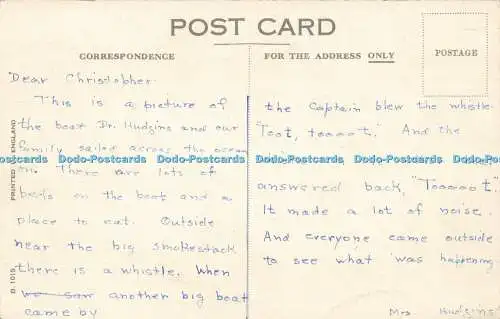 POST CARD
CORRESPONDENCE
FOR THE ADDRESS ONLY
POSTAGE
PRINTED IN ENGLAND
D. 1019
Dear Christopher
This is a picture of
the boat Dr. Hudgins and our
family sailed across the ocean
on. There are lots of
beds on the boat and a
place to eat. Outside
near the big smokestack
there is a whistle. When
we saw another big boat
came by
the Captain blew the whistle
"Toot, toooot." And the
answered back, "Tooooot".
It made a lot of noise.
And everyone came outside
to see what was happening
Mrs Hudgins
Dodo-Postcards Dodo-Postcards Dodo-Postcards Dodo-Postcards